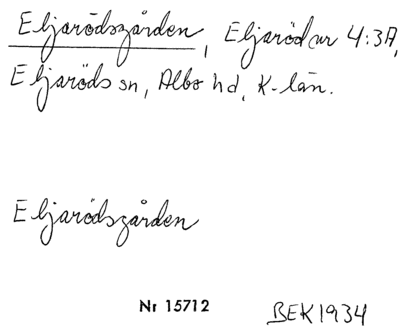 Eljarödsgården, Eljaröd nr 4:3A,
Eljaröds sn, Albo hd, K-län.
Eljarödsgården
Nr 15712 BEK 1934